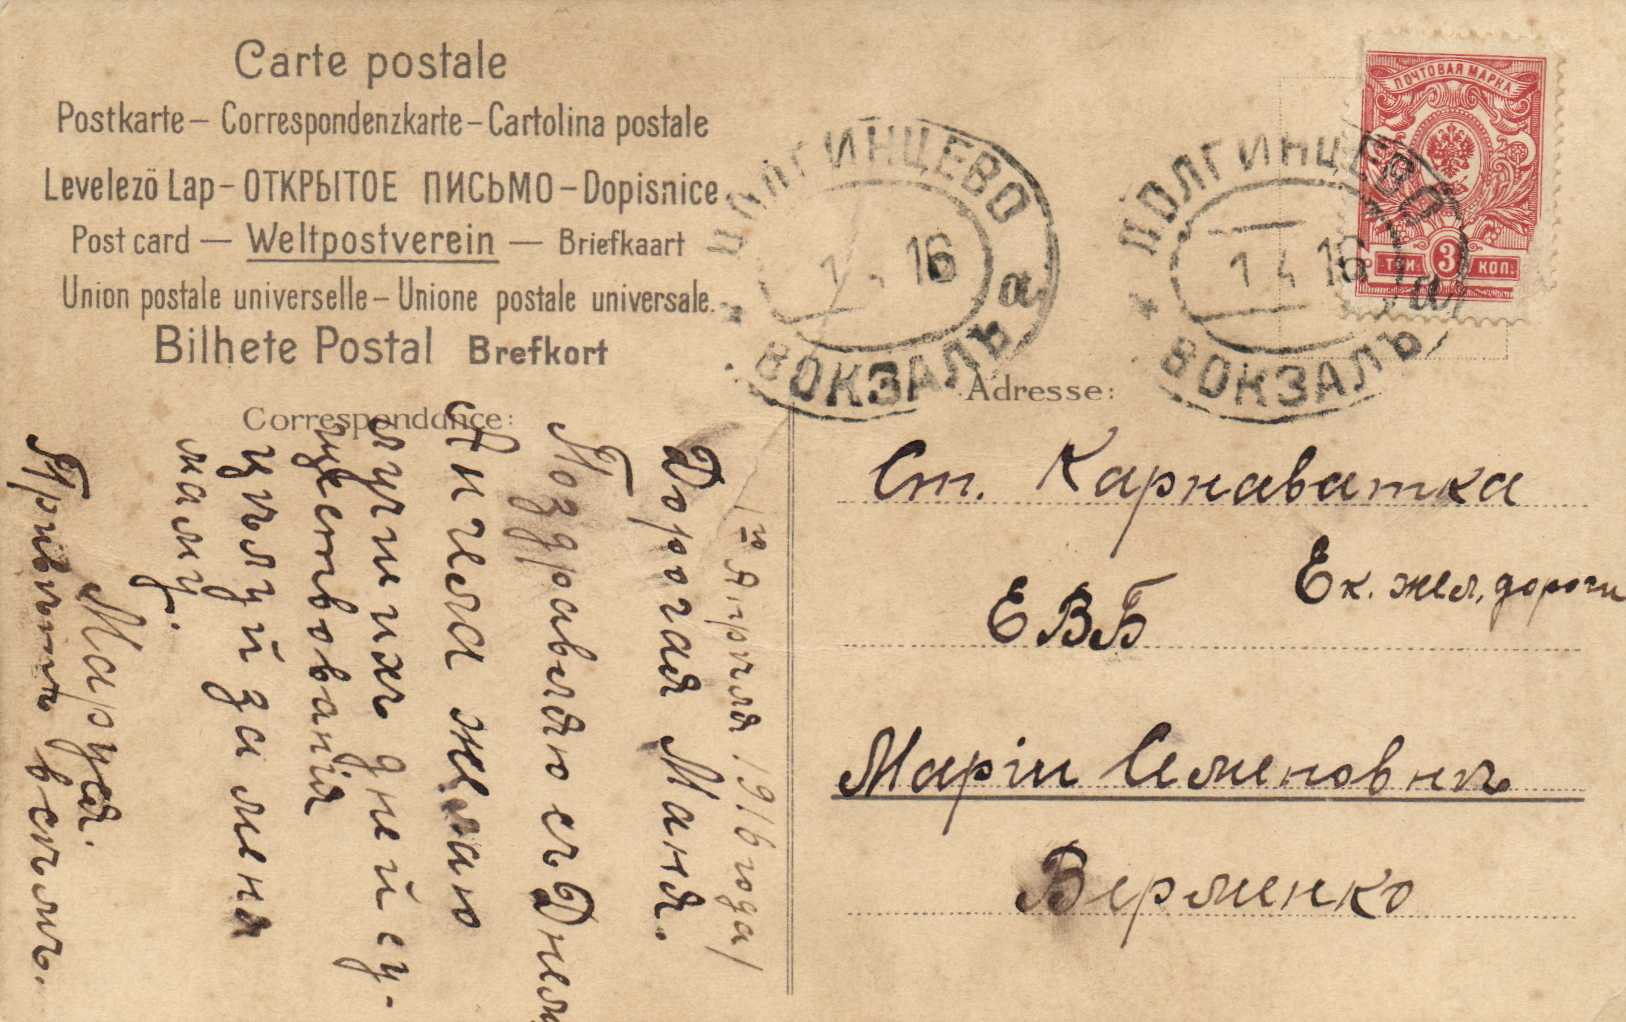 Carte postale
Postkarte – Correspondenzkarte – Cartolina postale
Levelezö Lap – ОТКРЫТОЕ ПИСЬМО – Dopisnice
Post card — Weltpostverein — Briefkaart
Union postale universelle – Unione postale universale.
Bilhete Postal Brefkort
Correspondance:
Adresse:
ПОЧТОВАЯ МАРКА
ТРИ 3 КОП.
ДОЛГИНЦЕВО
1. 16
а
ВОКЗАЛЪ
ДОЛГИНЦЕВО
1 4 16
а
ВОКЗАЛЪ
1го Апрѣля 1916 года
Дорогая Маня.
Поздравляю съ Днем
Ангела желаю
лучшихъ дней су-
ществованія
цѣлуй за меня
маму.
Маруся.
Привѣтъ всѣмъ.
Ст. Карнаватка
Ек. жел. дороги
ЕВБ
Маріи Семеновнѣ
Верменко